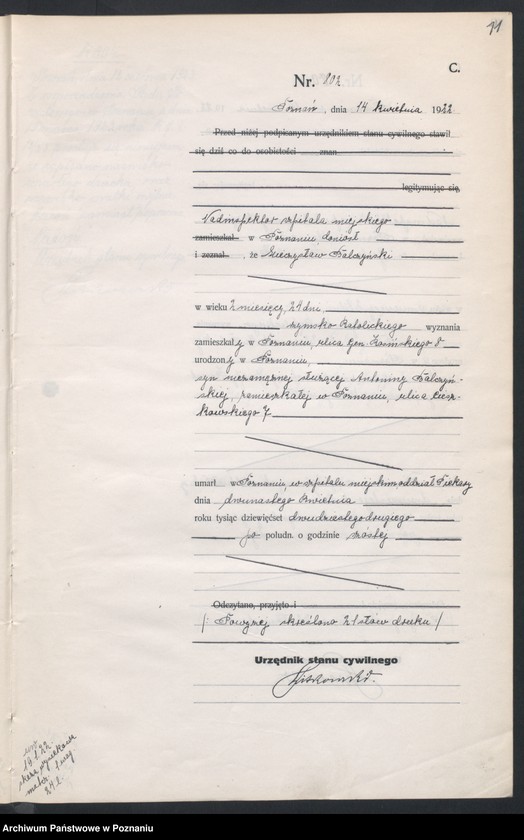 C.
Nr. 802
Poznań, dnia 14 kwietnia 1922
Przed niżej podpisanym urzędnikiem stanu cywilnego stawił
się dziś co do osobistości znan
legitymując się,
Nadinspektor szpitala miejskiego
zamieszkał w Poznaniu, doniósł
i zeznał, że Mieczysław Galczyński
w wieku 2 miesięcy, 24 dni,
rzymsko katolickiego wyznania
zamieszkały w Poznaniu, ulica Gen.
urodzony w Poznaniu,
syn niezamężnej służącej Antoniny Galczyń-
skiej, zamieszkałej w Poznaniu, ulica Ciesz-
kowskiego 7
umarł w Poznaniu, w szpitalu miejskim oddział Piekary
dnia dwunastego kwietnia
roku tysiąc dziewięćset dwudziestego drugiego
po połudn. o godzinie szóstej
Odczytano, przyjęto i
/: Powyżej skreślono 21 słów druku /
Urzędnik stanu cywilnego
ur.
19.1.22
Archiwum Państwowe w Poznaniu